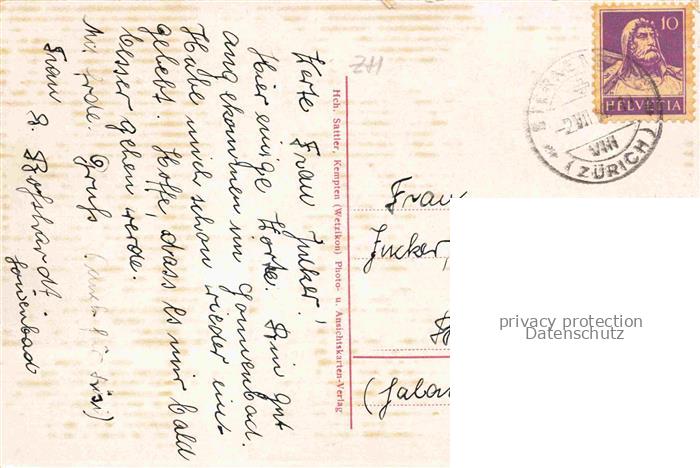 Werte Frau Jucker!
Hier einige Worte. Bin gut
angekommen im Gyrenbad.
Habe mich schon wieder ein-
gelebt. Hoffe, dass es mir bald
besser gehen werde.
Mit frdl. Gruss
Frau B. Bosshardt.
Hch. Sattler, Kempten (Wetzikon) Photo- u. Ansichtskarten-Verlag
ZH
10
HELVETIA
VIII
(ZÜRICH)
Frau
Jucker,
privacy protection
Datenschutz